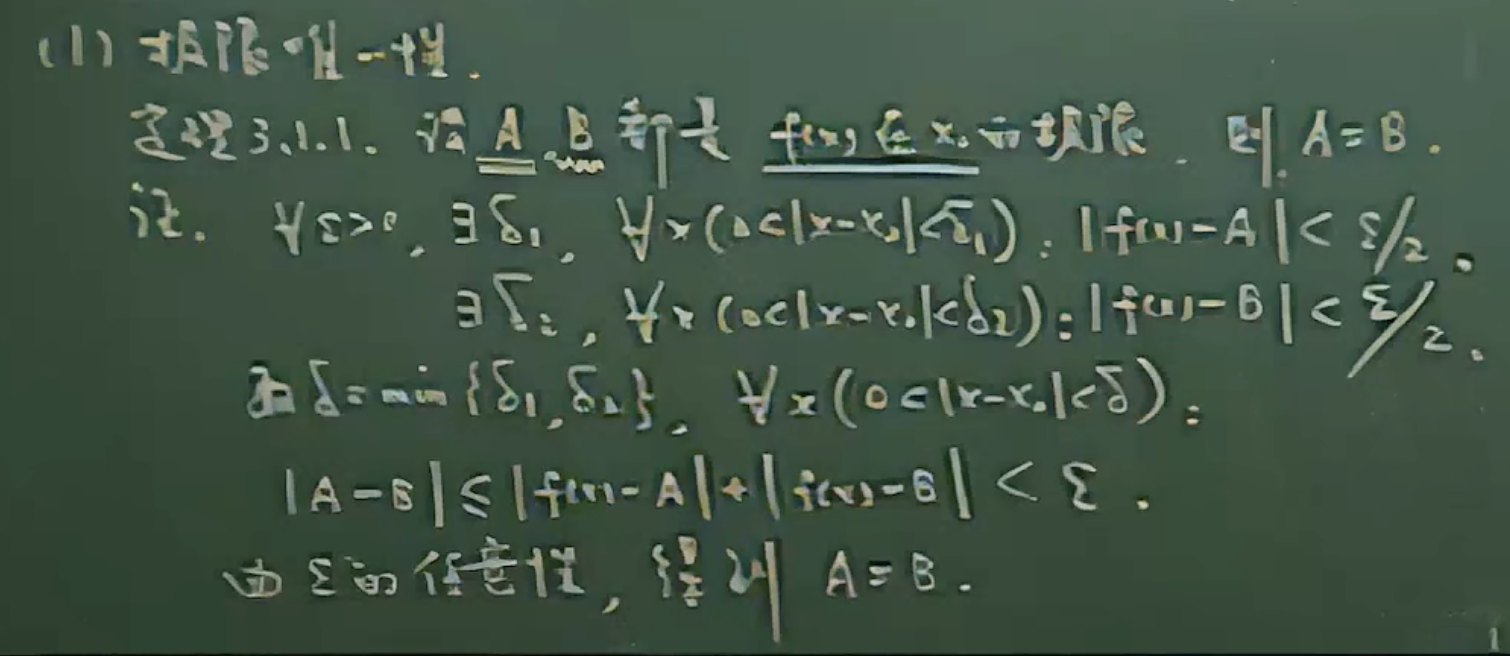 (1) 极限唯一性.
定理3.1.1. 设 A, B 都是 f(x) 在 x₀ 的极限, 则 A = B.
证. ∀ε>0, ∃δ₁, ∀x(0<|x-x₀|<δ₁): |f(x)-A|<ε/2.
∃δ₂, ∀x(0<|x-x₀|<δ₂): |f(x)-B|<ε/2.
取δ=min{δ₁,δ₂}, ∀x(0<|x-x₀|<δ):
|A-B|≤|f(x)-A|+|f(x)-B|<ε.
由ε的任意性, 得到 A=B.
1